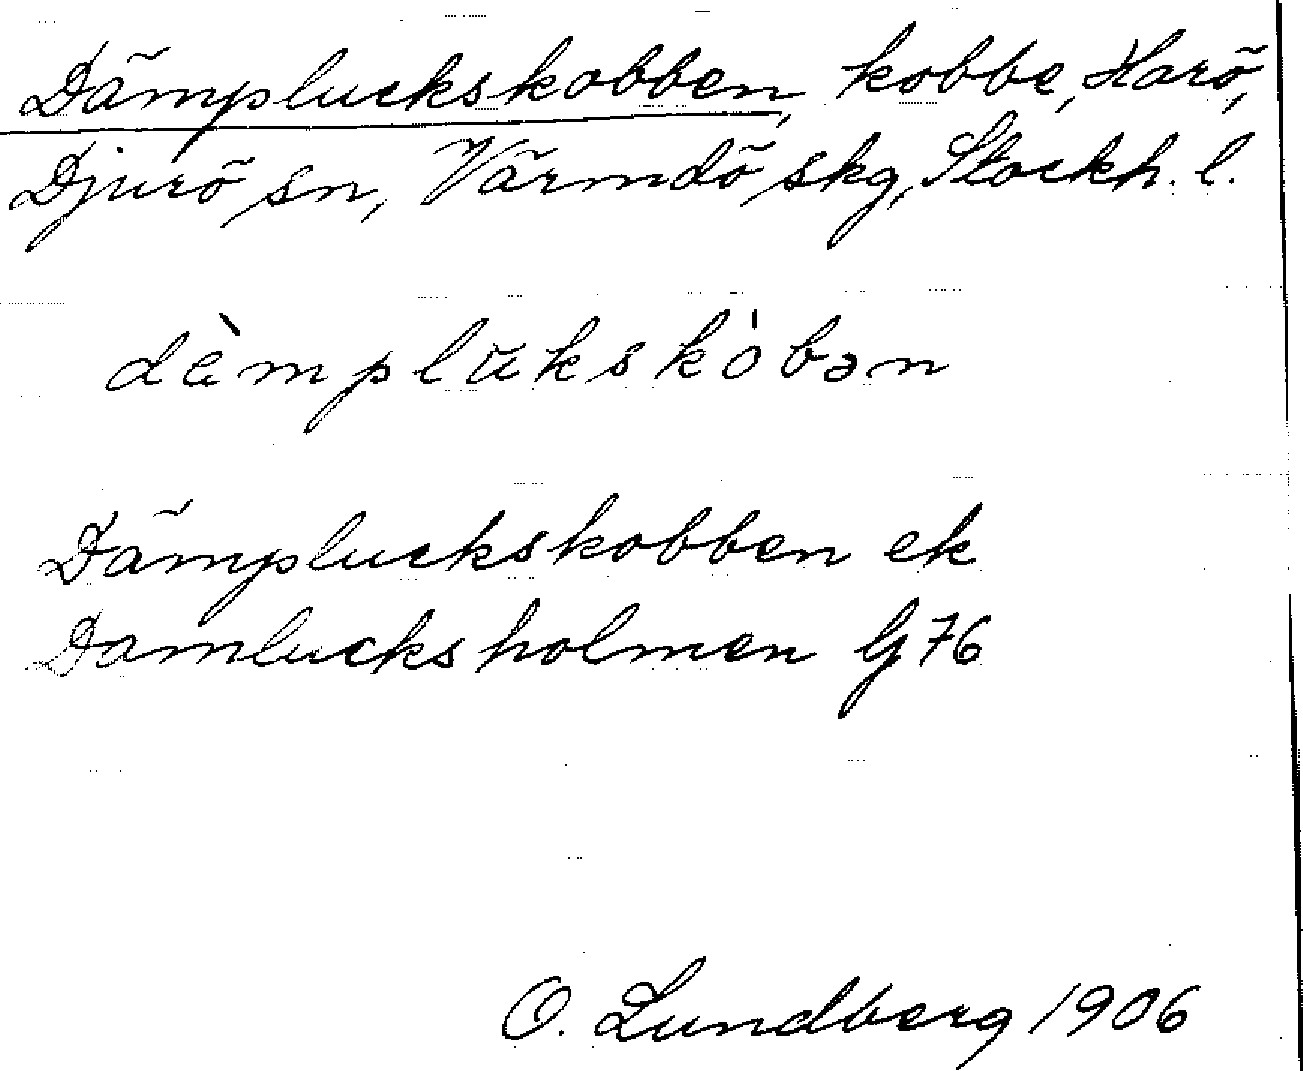 Dämpluckskobben, kobbe, Harö,
Djurö sn, Värmdö skg, Stockh. l.
dèmplukskȯbən
Dämpluckskobben ek
Damlucksholmen G76
O. Lundberg 1906